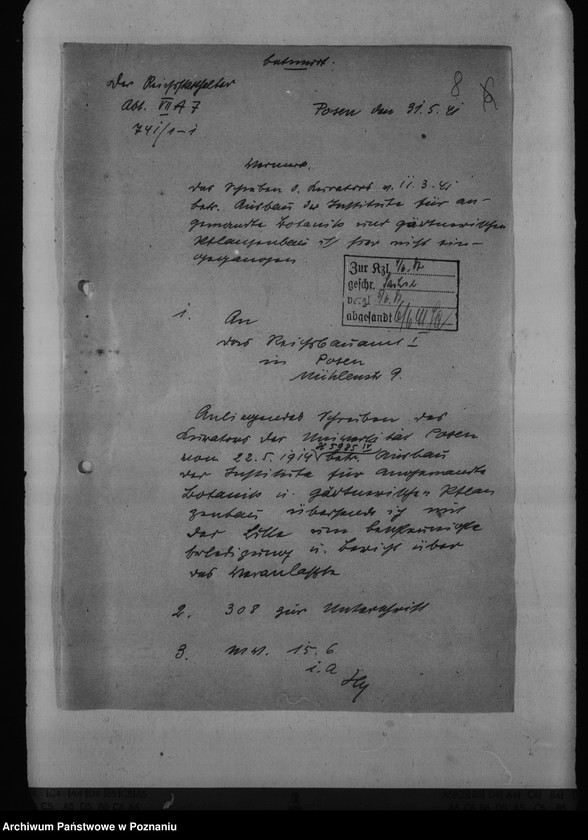 Entwurf.
Der Reichsstatthalter
Abt. VII A 7
741/1-1
8
Posen den 31.5.41
Vermerk.
Das Schreiben d. Kurators v. 11.3.41
betr. Ausbau der Institute für an-
gewandte Botanik und gärtnerischen
Pflanzenbau ist hier nicht ein-
gegangen
Zur Kzl.
geschr.
vergl.
abgesandt
1. An
das Reichsbauamt I
in Posen
Mühlenstr 9.
Anliegendes Schreiben des
Kurators der Universität Posen
vom 22.5.1941 betr. Ausbau
der Institute für angewandte
Botanik u. gärtnerischen Pflan
zenbau übersende ich mit
der Bitte um beschleunigte
Erledigung u. Bericht über
das Veranlaßte
2. 308 zur Unterschrift
3. Wv. 15.6
i.A
Archiwum Państwowe w Poznaniu